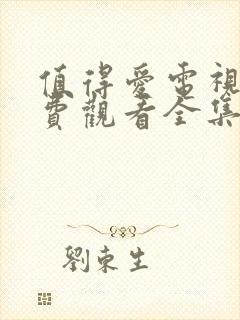 值得愛電視
費觀看全集
劉東生